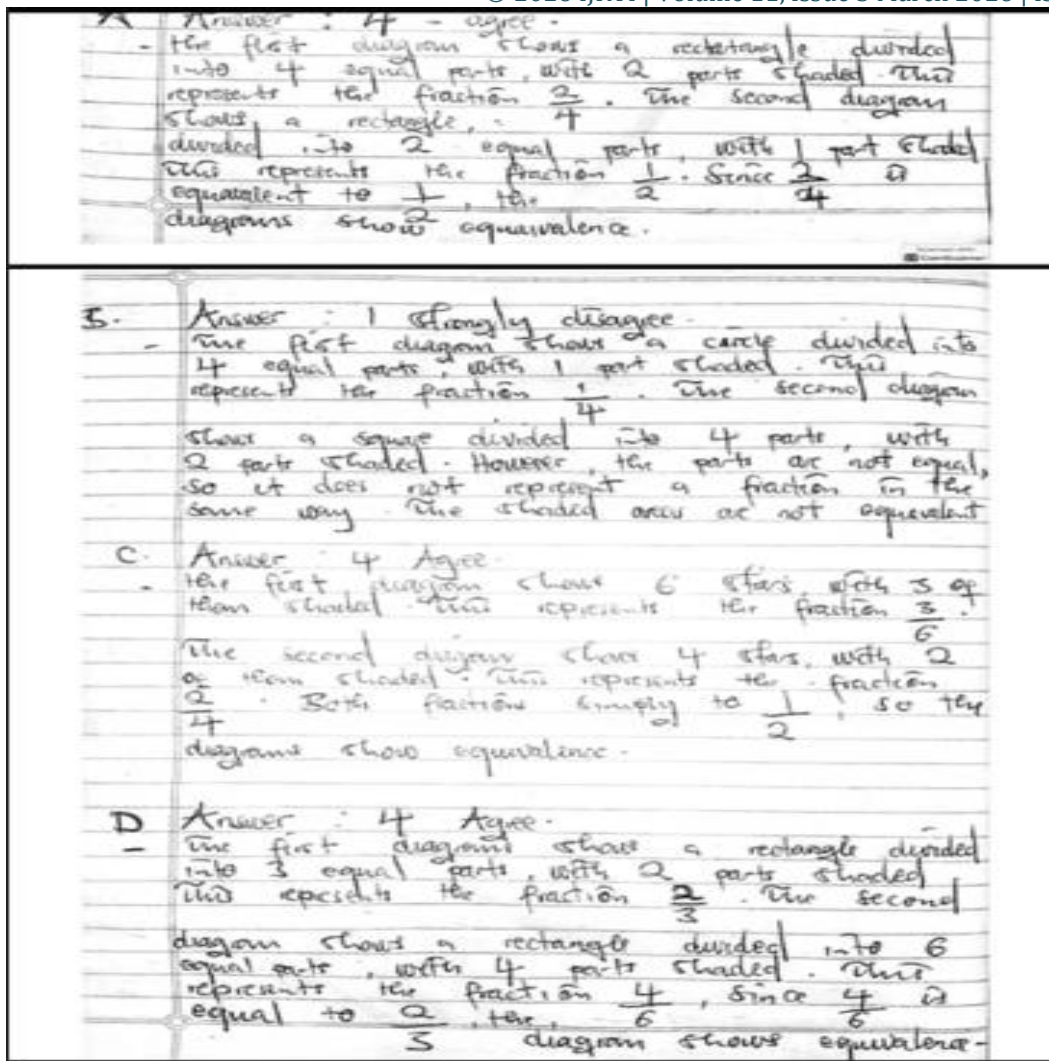 A Answer : 4 - agree.
- the first diagram shows a rectetangle divided
into 4 equal parts, with 2 parts shaded. This
represents the fraction 2/4. The second diagram
shows a rectangle,
divided into 2 equal parts, with 1 part shaded
This represents the fraction 1/2. Since 2/4 is
equavalent to 1/2, the
diagrams show equaivalence.
B. Answer : 1 strongly disagree.
- The first diagram shows a circle divided into
4 equal parts, with 1 part shaded. This
represents the fraction 1/4. The second diagram
shows a square divided into 4 parts, with
2 parts shaded. However, the parts are not equal,
so it does not represent a fraction in the
same way. The shaded areas are not equivalent
C. Answer : 4 Agree.
- the first diagram shows 6 stars, with 3 of
them shaded. This represents the fraction 3/6.
The second diagram shows 4 stars, with 2
of them shaded. This represents the fraction
2/4. Both fractions simply to 1/2, so the
diagrams show equivalence.
D Answer : 4 Agree.
- The first diagrams shows a rectangle divided
into 3 equal parts, with 2 parts shaded
This represents the fraction 2/3. The second
diagram shows a rectangle divided into 6
equal parts, with 4 parts shaded. This
represents the fraction 4/6, Since 4/6 is
equal to 2/3, the,
diagram shows equivalence-